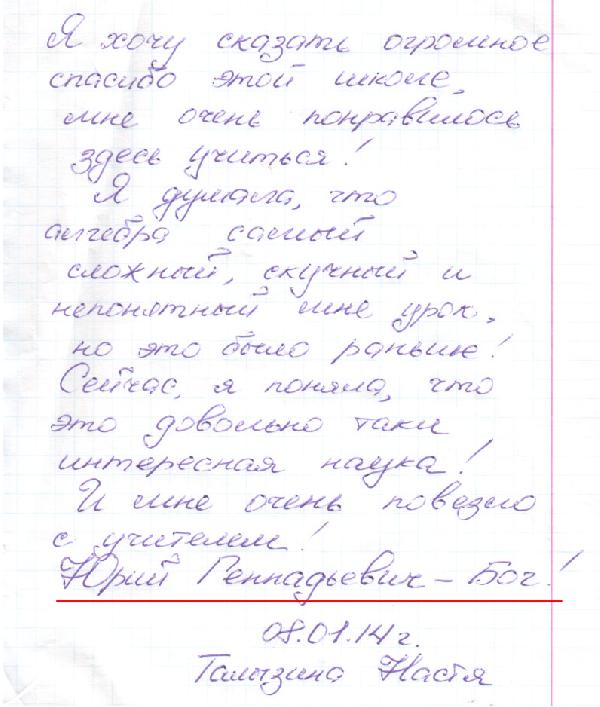 Я хочу сказать огромное
спасибо этой школе,
мне очень понравилось
здесь учиться!
Я думала, что
алгебра самый
сложный, скучный и
непонятный мне урок,
но это было раньше!
Сейчас, я поняла, что
это довольно таки
интересная наука!
И мне очень повезло
с учителем!
Юрий Геннадьевич – Бог!
08.01.14 г.
Талызина Настя